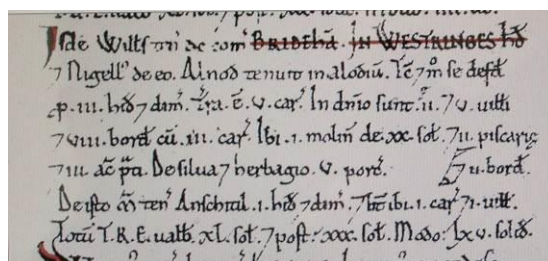 Isdē Willš ten̄ de com̄ BRIDEHĀ. IN WESTRINGES HĐ
7 Nigell' de eo. Alnod tenuit in alodiū. Tc̄ 7 m̊ se defđ
ꝓ .III. hiđ 7 dim̄. Tr̄a. ē. v. car̄. In dn̄io sunt .ii. 7 v. uilłi
7 viii. borđ cū .iii. car̄. Ibi .i. molin̄ de xx. sol. 7 ii. piscariȩ
7 iii. ac̄ p̄ti. De silua 7 herbagio. v. porc̄. 7 ii. borđ.
De isto m̄ ten̄ Anschitil .i. hiđ 7 dim̄. 7 h̄t ibi .i. car̄ 7 i. uilł.
Totū T.R.E. ualb̄. xl. sol. 7 post: xxx. sol. Modo: lxv. soliđ.